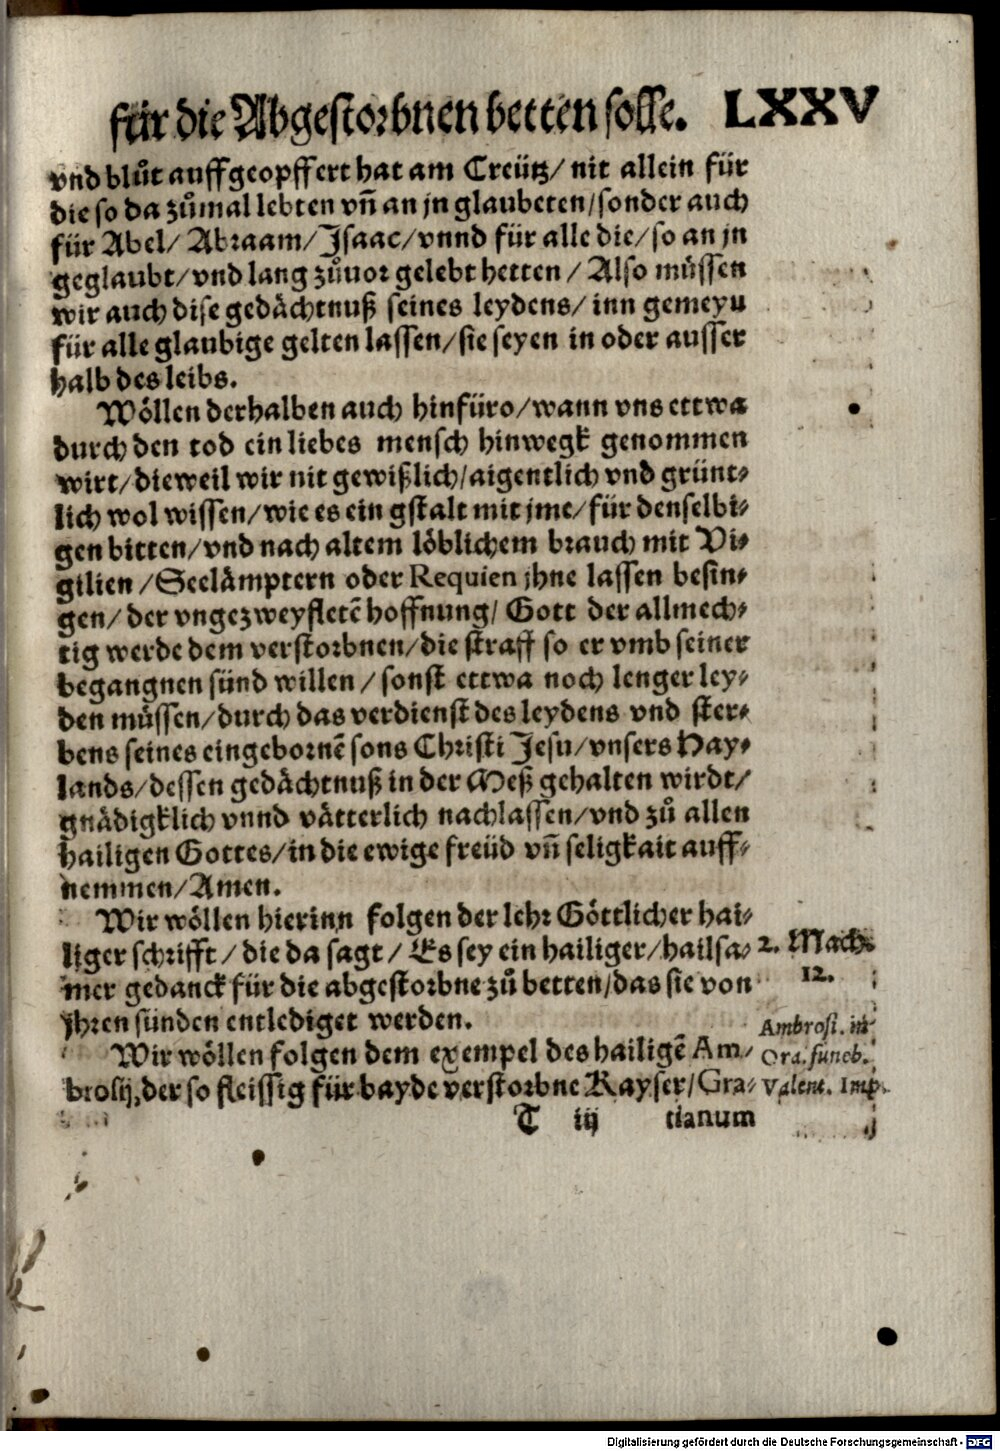 für die Abgestorbnen betten solle. LXXV
vnd blůt auffgeopffert hat am Creütz/ nit allein für
die so da zůmal lebten vñ an jn glaubeten/sonder auch
für Abel/ Abraam/Isaac/vnnd für alle die/so an jn
geglaubt/vnd lang zůuor gelebt hetten/ Also müssen
wir auch dise gedächtnuß seines leydens/ inn gemeyn
für alle glaubige gelten lassen/sie seyen in oder ausser
halb des leibs.
Wöllen derhalben auch hinfüro/wann vns ettwa
durch den tod ein liebes mensch hinwegk genommen
wirt/dieweil wir nit gewißlich/aigentlich vnd grünt-
lich wol wissen/wie es ein gstalt mit jme/für denselbi-
gen bitten/vnd nach altem löblichem brauch mit Vi-
gilien/Seelämptern oder Requien jhne lassen besin-
gen/ der vngezweyfletẽ hoffnung/ Gott der allmech-
tig werde dem verstorbnen/die straff so er vmb seiner
begangnen sünd willen/ sonst ettwa noch lenger ley-
den müssen/durch das verdienst des leydens vnd ster-
bens seines eingebornẽ sons Christi Jesu/vnsers Hay-
lands/dessen gedächtnuß in der Meß gehalten wirdt/
gnädigklich vnnd vätterlich nachlassen/vnd zů allen
hailigen Gottes/in die ewige freüd vñ seligkait auff-
nemmen/Amen.
Wir wöllen hierinn folgen der lehr Göttlicher hai-
liger schrifft/ die da sagt/ Es sey ein hailiger/hailsa-
mer gedanck für die abgestorbne zů betten/das sie von
jhren sünden entlediget werden.
Wir wöllen folgen dem exempel des hailigẽ Am-
brosij, der so fleissig für bayde verstorbne Kayser/Gra-
T iij tianum
2. Mach.
12.
Ambrosi. in
Ora. funeb.
Valent. Imp.
Digitalisierung gefördert durch die Deutsche Forschungsgemeinschaft - DFG